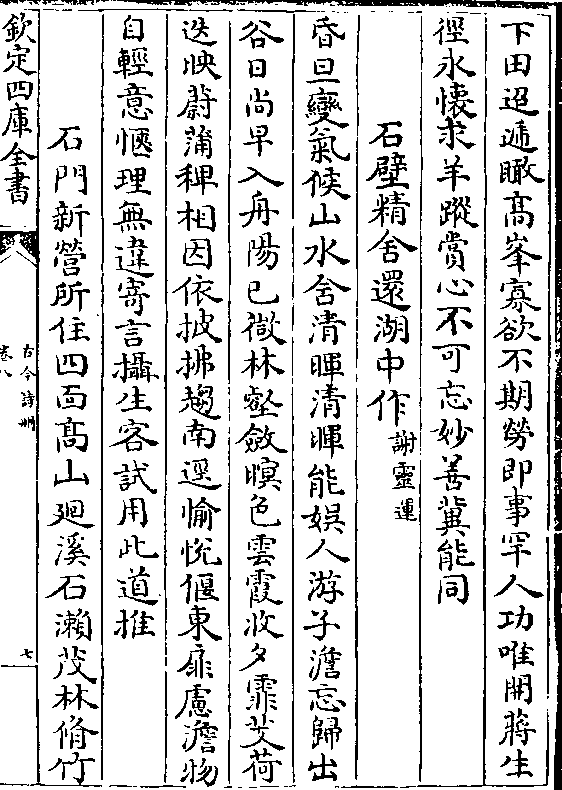 下田迢遞瞰高峯寡欲不期勞即事罕人功唯開蔣生
徑永懷求羊蹤賞心不可忘妙善冀能同
石壁精舍還湖中作謝靈運
昏旦變氣候山水含清暉清暉能娱人游子澹忘歸出
谷日尚早入舟陽已微林壑斂暝色雲霞收夕霏芰荷
迭映蔚蒲稗相因依披拂趨南逕愉悅偃東扉慮澹物
自輕意愜理無違寄言攝生客試用此道推
石門新營所住四面高山廻溪石瀨茂林脩竹
欽定四庫全書
古今詩刪
卷八
七